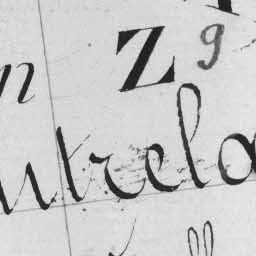 n Z 9
utrela